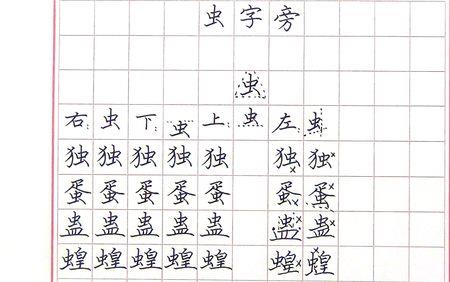 虫字旁
虫
右虫下虫上虫左虫
独独独独独独独
蛋蛋蛋蛋蛋蛋蛋
蛊蛊蛊蛊蛊蛊蛊
蝗蝗蝗蝗蝗蝗蝗